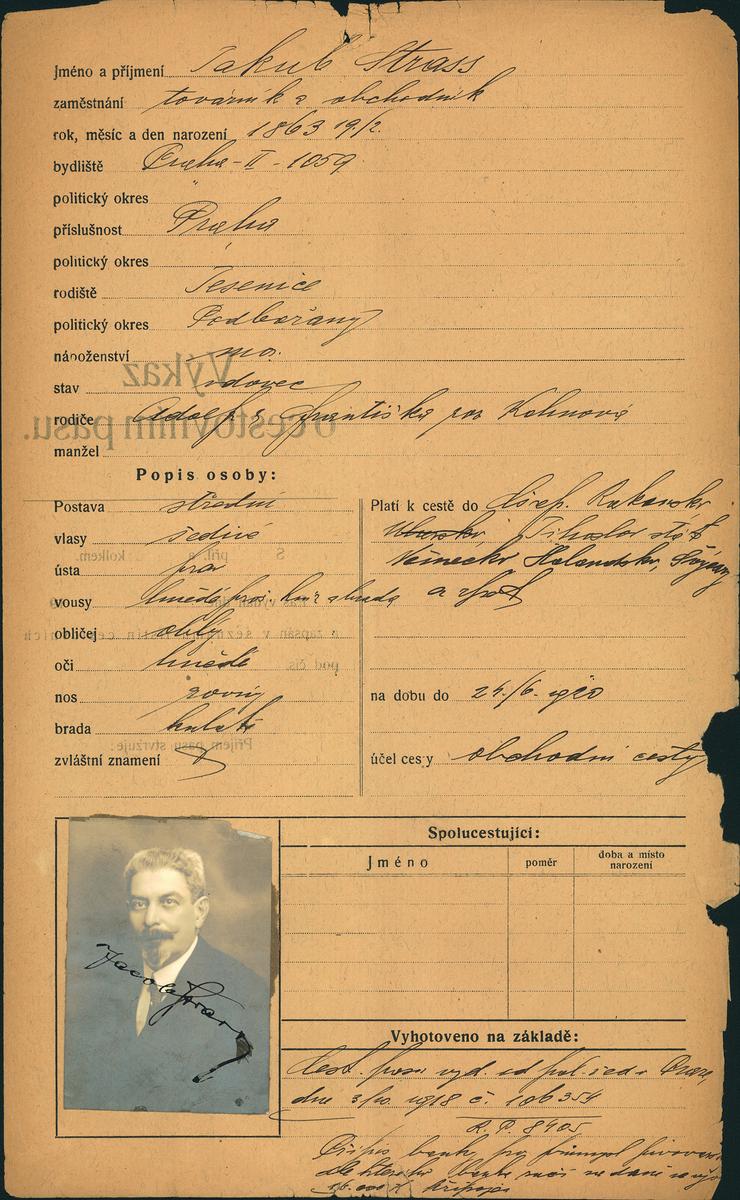 Jméno a příjmení Jakub Strass
zaměstnání továrník a obchodník
rok, měsíc a den narození 1863 19/2.
bydliště Praha-II-1059
politický okres
příslušnost Praha
politický okres
rodiště Jesenice
politický okres Podbořany
náboženství mo.
stav vdovec
rodiče Adolf a Františka roz Kohnová
manžel
Výkaz
o cestovním pasu.
Popis osoby:
Postava střední
vlasy šedivé
ústa
vousy hnědé
obličej oblý
oči hnědé
nos rovný
brada kulatá
zvláštní znamení
Platí k cestě do Rakouska
Německa, Holandska,
a zpět
na dobu do 24./6. 1920
účel cesty obchodní cesty
Příjem pasu stvrzuje:
Jacob Strass
Spolucestující:
Jméno poměr doba a místo narození
Vyhotoveno na základě:
cest. pasu vyd. od pol. řed. v Praze,
dne 3/10. 1918 č. 106354